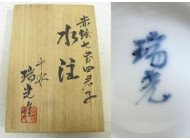 赤絵七宝四君子
水注
平安
瑞光造
瑞光